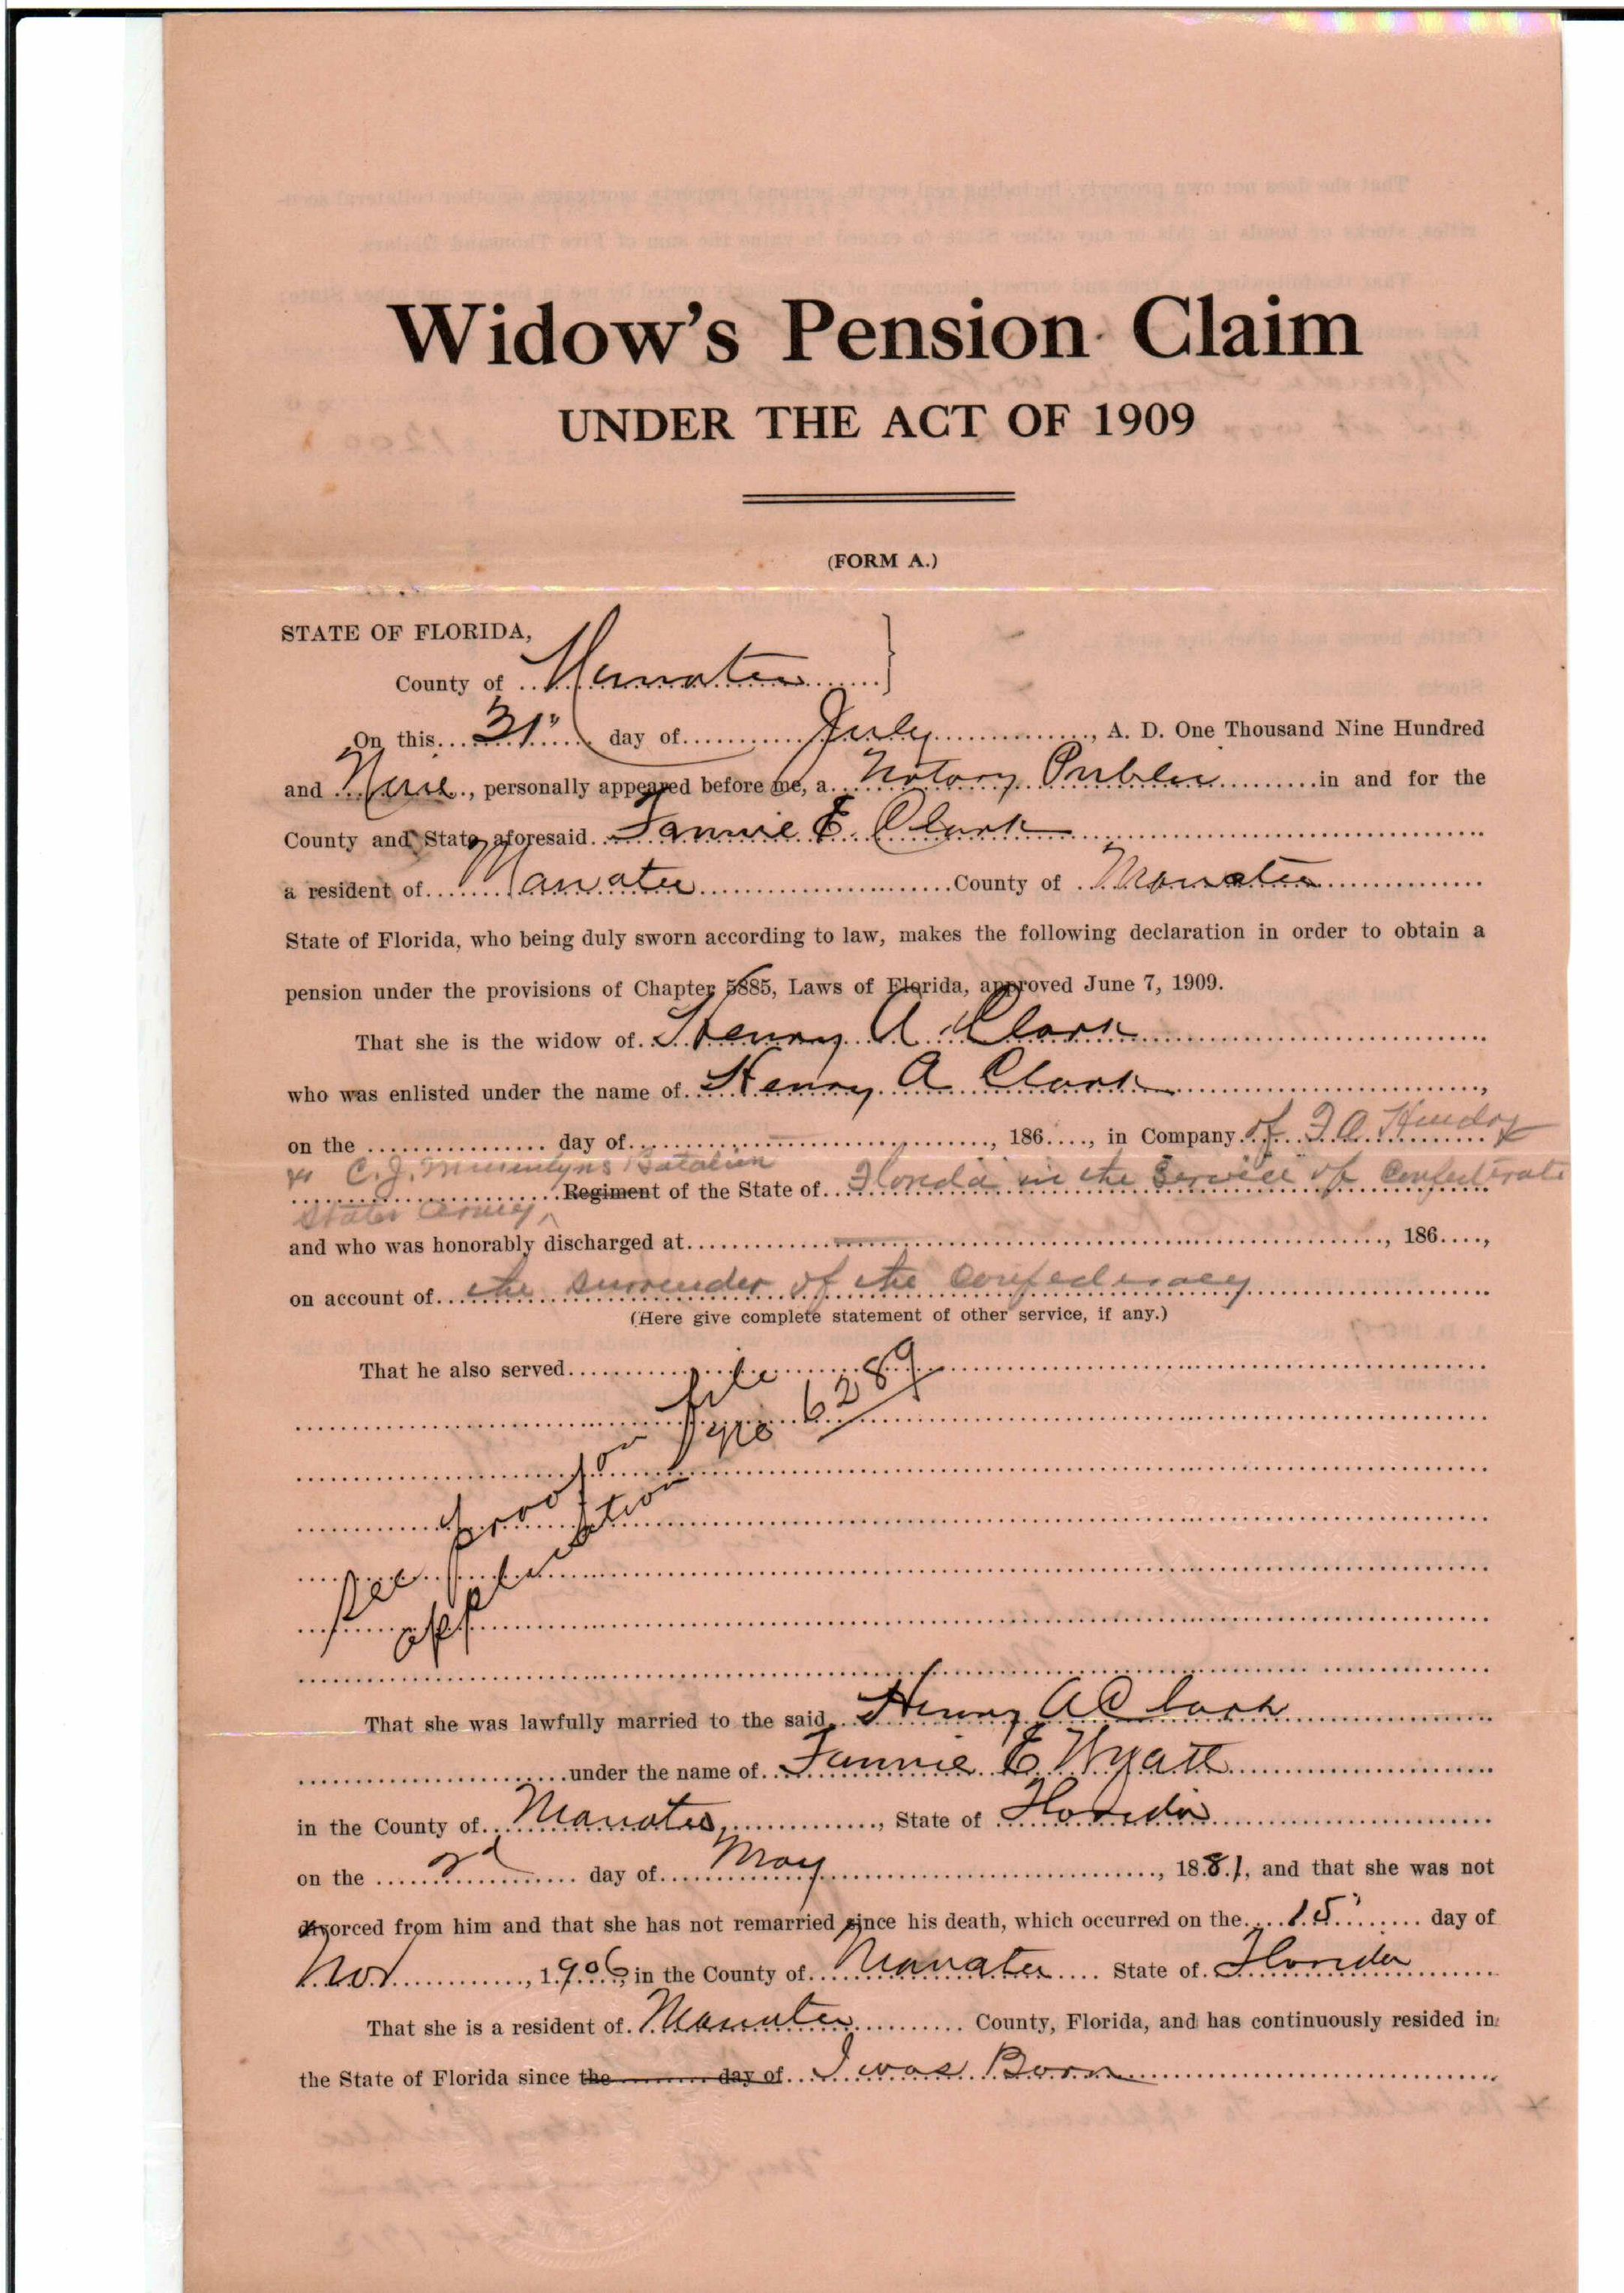 Widow's Pension Claim
UNDER THE ACT OF 1909
(FORM A.)
STATE OF FLORIDA,
County of Manatee
On this 31" day of July, A. D. One Thousand Nine Hundred
and Nine, personally appeared before me, a Notary Public in and for the
County and State aforesaid Fannie E. Clark
a resident of Manatee County of Manatee
State of Florida, who being duly sworn according to law, makes the following declaration in order to obtain a
pension under the provisions of Chapter 5885, Laws of Florida, approved June 7, 1909.
That she is the widow of Henry A Clark
who was enlisted under the name of Henry A Clark,
on the day of, 186, in Company of F. A. Hendry
C. J. Munnerlyns Batalion
Regiment of the State of Florida in the Service of Confederate
States Army
and who was honorably discharged at, 186,
on account of the surrender of the Confederacy
(Here give complete statement of other service, if any.)
That he also served
See proof on file
application No 6289
That she was lawfully married to the said Henry A Clark
under the name of Fannie E Wyatt
in the County of Manatee, State of Florida
on the 2d day of May, 1881, and that she was not
divorced from him and that she has not remarried since his death, which occurred on the 15" day of
Nov, 1906, in the County of Manatee State of Florida
That she is a resident of Manatee County, Florida, and has continuously resided in
the State of Florida since the day of I was Born